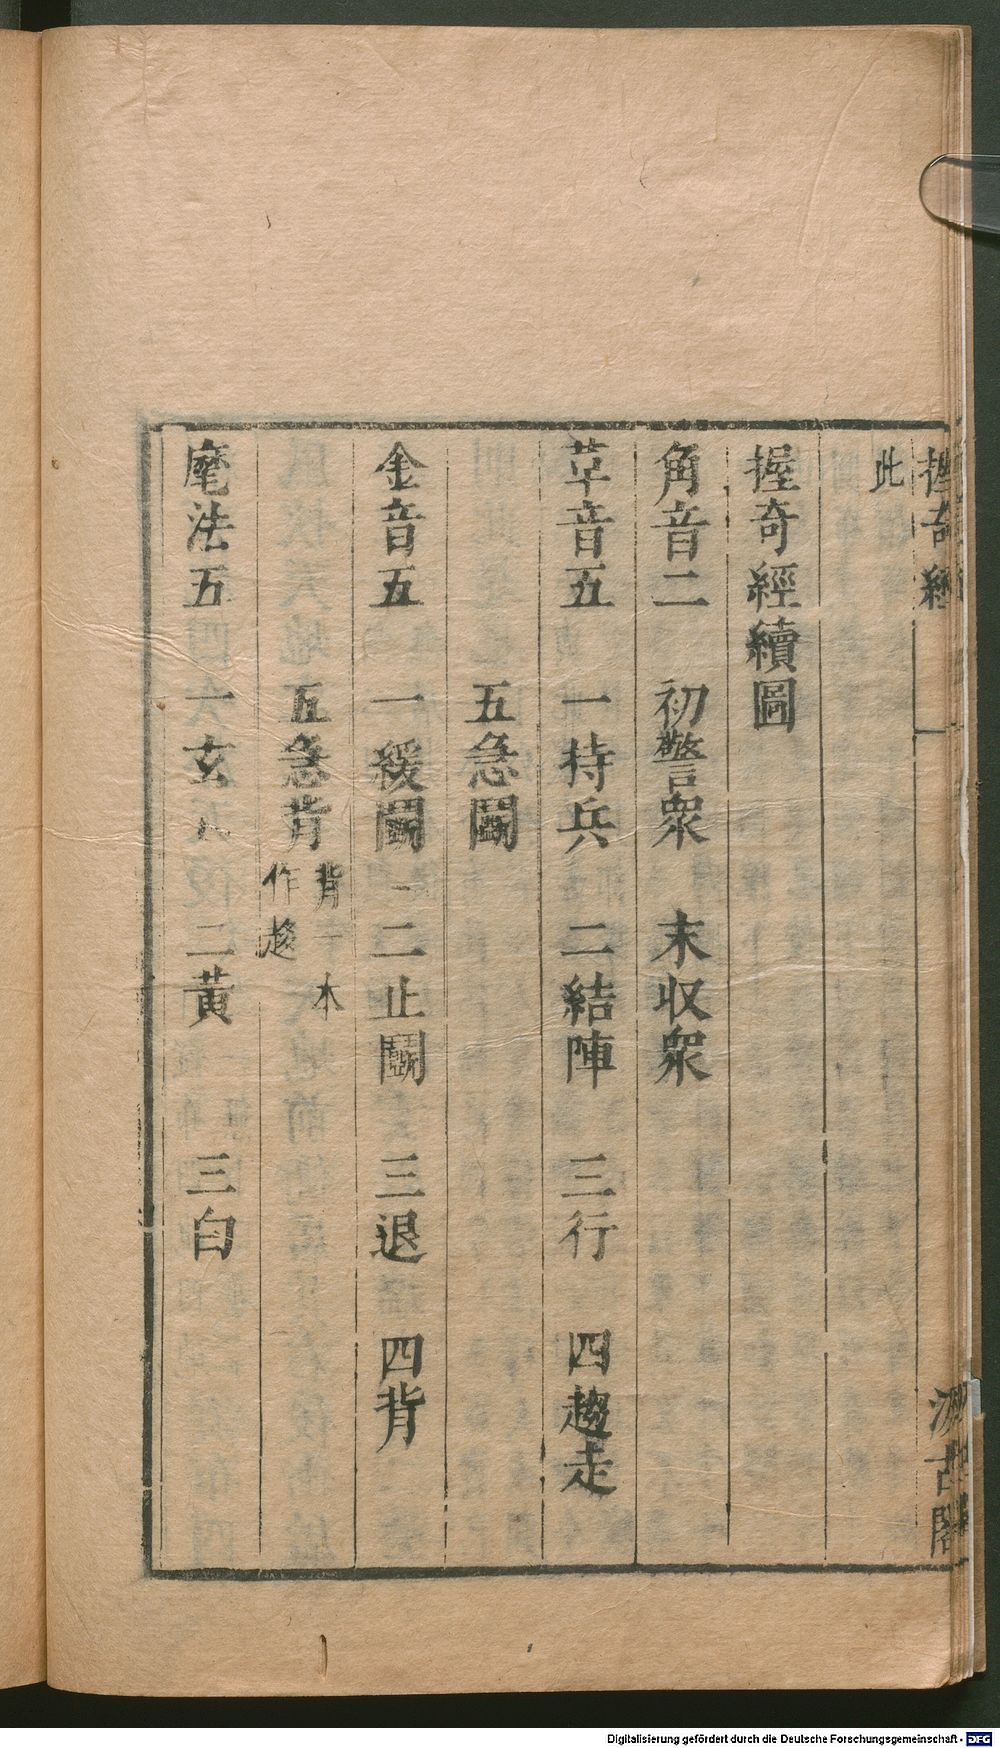 握奇經
一
汲古閣
此
握奇經續圖
角音二 初警衆 末收衆
革音五 一持兵 二結陣 三行 四趨走
五急鬭
金音五 一緩鬭 二止鬭 三退 四背
五急背 背一本作趍
麾法五 一玄 二黃 三白
Digitalisierung gefördert durch die Deutsche Forschungsgemeinschaft - DFG